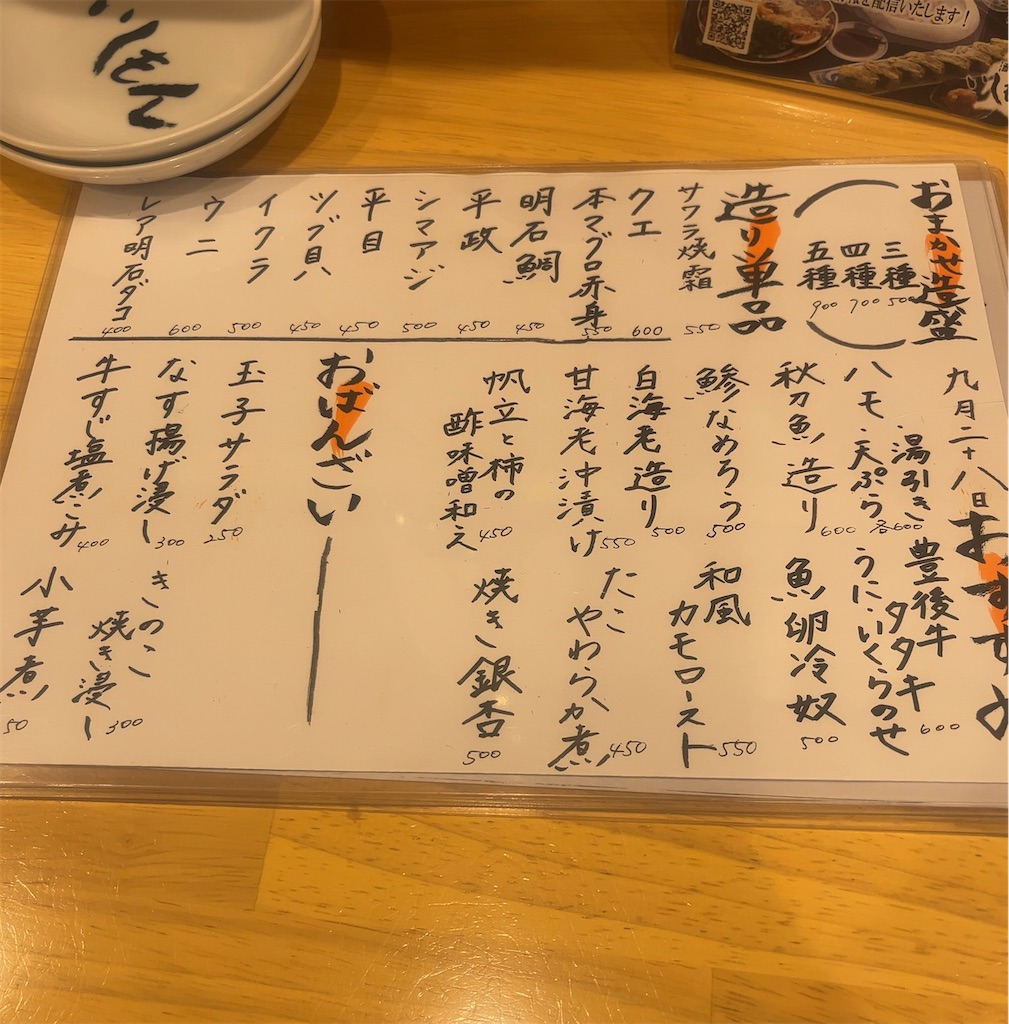 おまかせ造盛
三種 500
四種 700
五種 900
造り単品
サワラ焼霜 550
クエ 600
本マグロ赤身 550
明石鯛 450
平政 450
シマアジ 500
平目 450
ツブ貝 450
イクラ 500
ウニ 600
レア明石ダコ 400
九月二十八日
おすすめ
ハモ・湯引き
・天ぷら 各600
秋刀魚造り 600
鯵なめろう 500
白海老造り 500
甘海老沖漬け 550
帆立と柿の
酢味噌和え 450
豊後牛タタキ
うに、いくらのせ 600
魚卵冷奴 500
和風
カモロースト 550
たこ
やわらか煮 450
焼き銀杏 500
おばんざい
玉子サラダ 250
なす揚げ浸し 300
牛すじ塩煮こみ 400
きのこ
焼き浸し 300
小芋煮
50
を配信いたします！